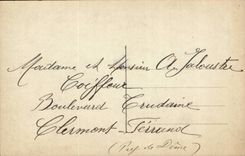 Madame et Monsieur A. Jaloustre
Coiffeur
Boulevard Trudaine
Clermont-Ferrand
(Puy de Dôme)